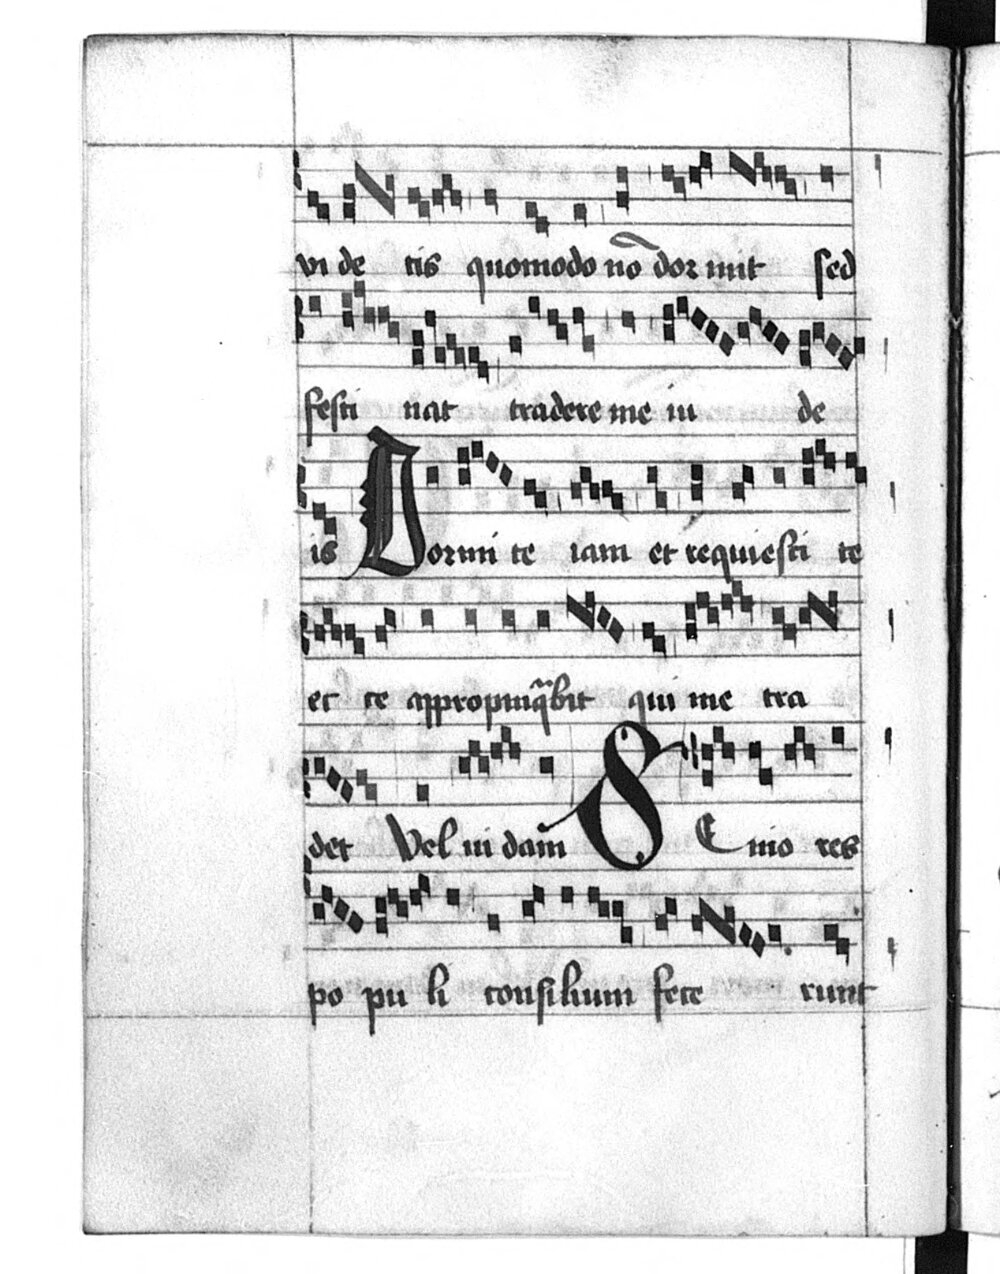 vi de tis quomodo nō dor mit sed
festi nat tradere me iu de
is Dormi te iam et requiesci te
ec ce appropinq̃bit qui me tra
det Vel iudam SE nio res
po pu li consilium fece runt